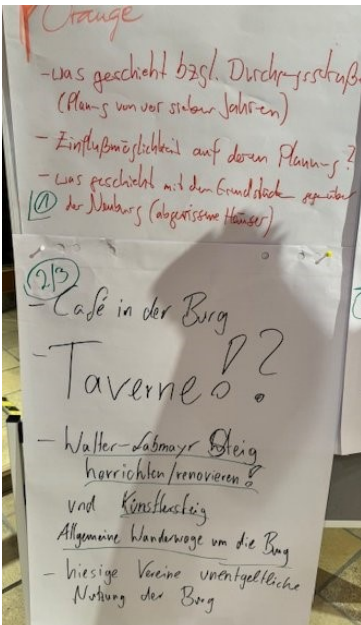 Orange
- was geschieht bzgl. Durchgangsstraße
(Planung von vor sieben Jahren)
- Einflußmöglichkeit auf deren Planung?
- was geschieht mit dem Grundstücke gegenüber
① der Neuburg (abgerissene Häuser)
2/3
- Café in der Burg
- Taverne!?
- Walter-Labmayr Steig
herrichten/renovieren!
und Künstlersteig
Allgemeine Wanderwege um die Burg
- hiesige Vereine unentgeltliche
Nutzung der Burg